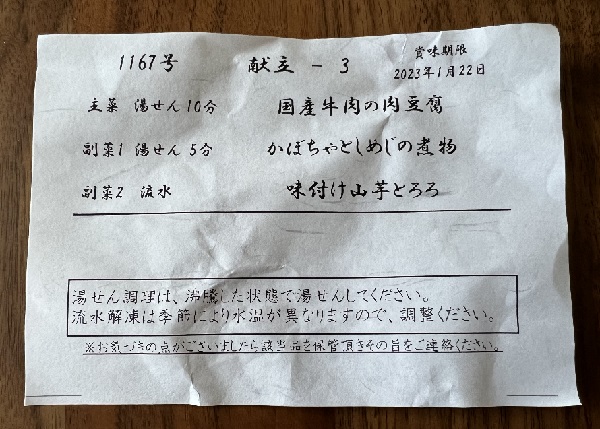 1167号 献立 - 3 賞味期限
2023年1月22日
主菜 湯せん10分 国産牛肉の肉豆腐
副菜1 湯せん5分 かぼちゃとしめじの煮物
副菜2 流水 味付け山芋とろろ
湯せん調理は、沸騰した状態で湯せんしてください。
流水解凍は季節により水温が異なりますので、調整ください。
※お気づきの点がございましたら該当品を保管頂きその旨をご連絡ください。